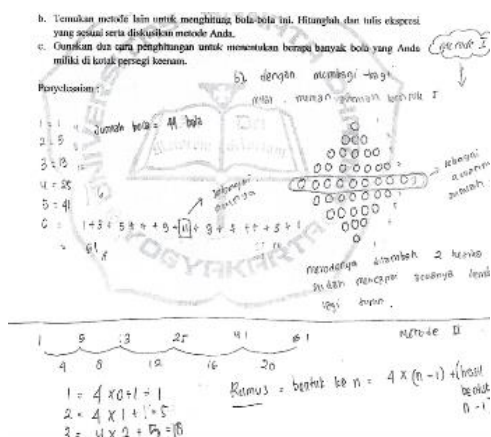 b. Temukan metode lain untuk menghitung bola-bola ini. Hitunglah dan tulis ekspresi
yang sesuai serta diskusikan metode Anda.
c. Gunakan dua cara penghitungan untuk menentukan berapa banyak bola yang Anda
miliki di kotak persegi keenam.
metode I
b) dengan membagi-bagi
Penyelesaian :
1 = 1
Jumlah bola = 41 bola
2 = 5
3 = 13
4 = 25
5 = 41
sebagai
6 = 1+3+5+7+9+11+9+7+5+3+1
= 61
UNIVERSITAS
YOGYAKARTA
metodenya ditambah 2 ketika
sudah mencapai
lagi turun.
1 5 13 25 41 61
4 8 12 16 20
Metode II
1 = 4 x 0 + 1 = 1
2 = 4 x 1 + 1 = 5
3 = 4 x 2 + 5 = 13
Rumus = bentuk ke n = 4 x (n - 1) + (hasil
bentuk
n - 1